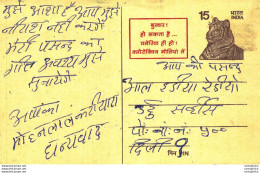 मुझे आशा है आप मुझे
निराश नहीं करेंगे
मेरी पसन्द का
गीत अवश्य मुझे
सुनायेंगे
आपका
मोहनलाल
धन्यवाद
बुखार!
हो सकता है...
मलेरिया ही हो!
क्लोरोक्विन गोलियां लें
15
भारत
INDIA
आप की पसन्द
आल इंडिया रेडियो
उर्दू सर्विस
पो. बा. नं. ५००
दिल्ली 9
पिन PIN